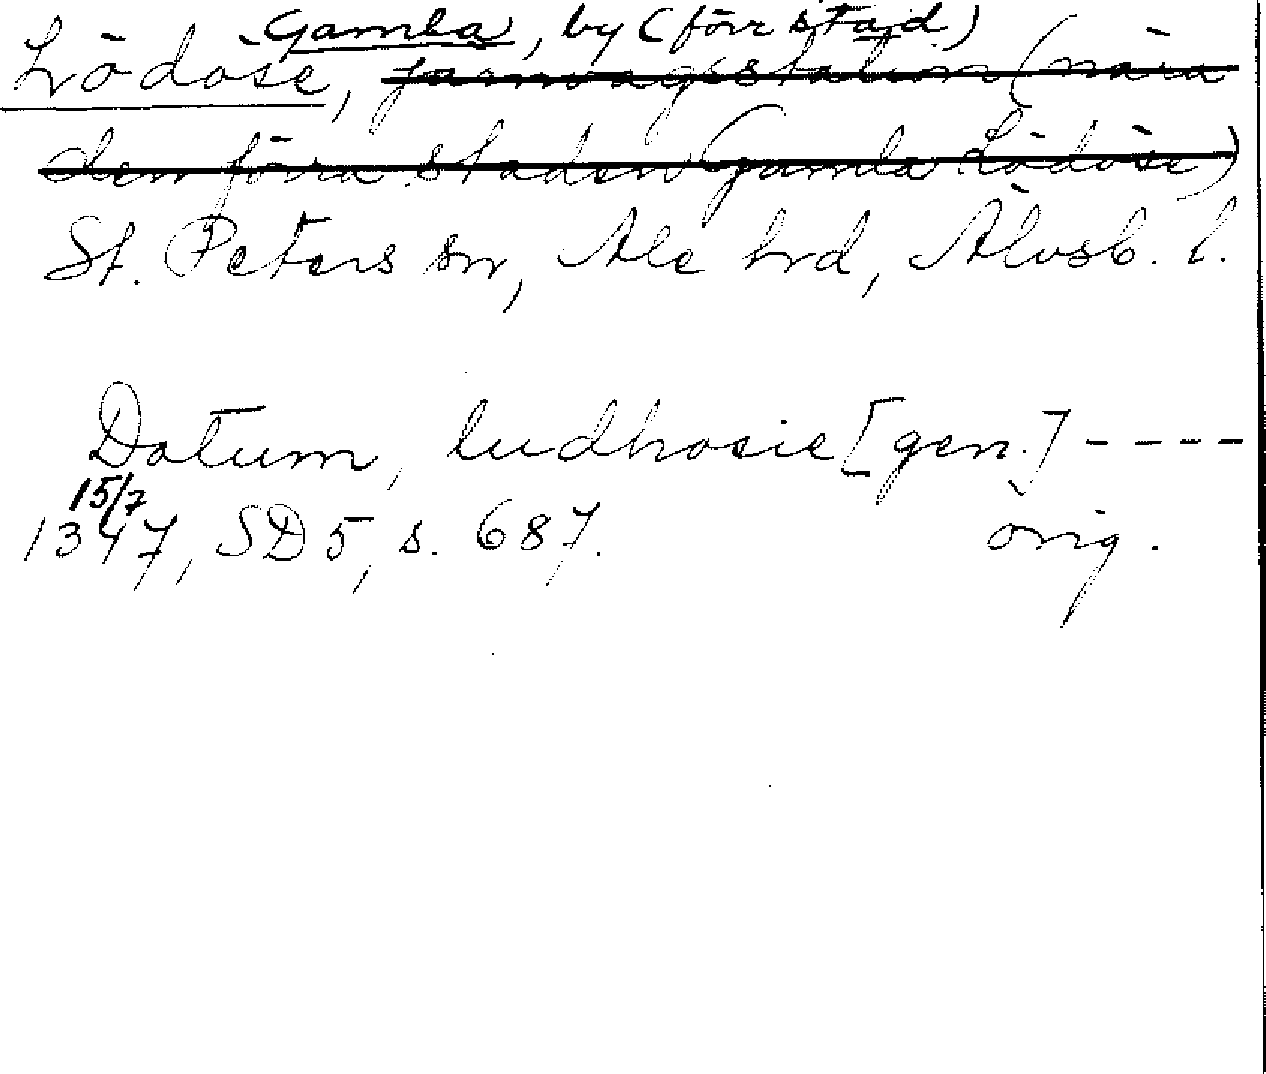 Gamla, by (förr stad)
Lödöse, järnvägsstation (nära
den förra staden Gamla Lödöse)
St. Peters sn, Ale hrd, Älvsb. l.
Datum, ludhosie [gen.] ----
15/7
1347, SD 5, s. 687. orig.